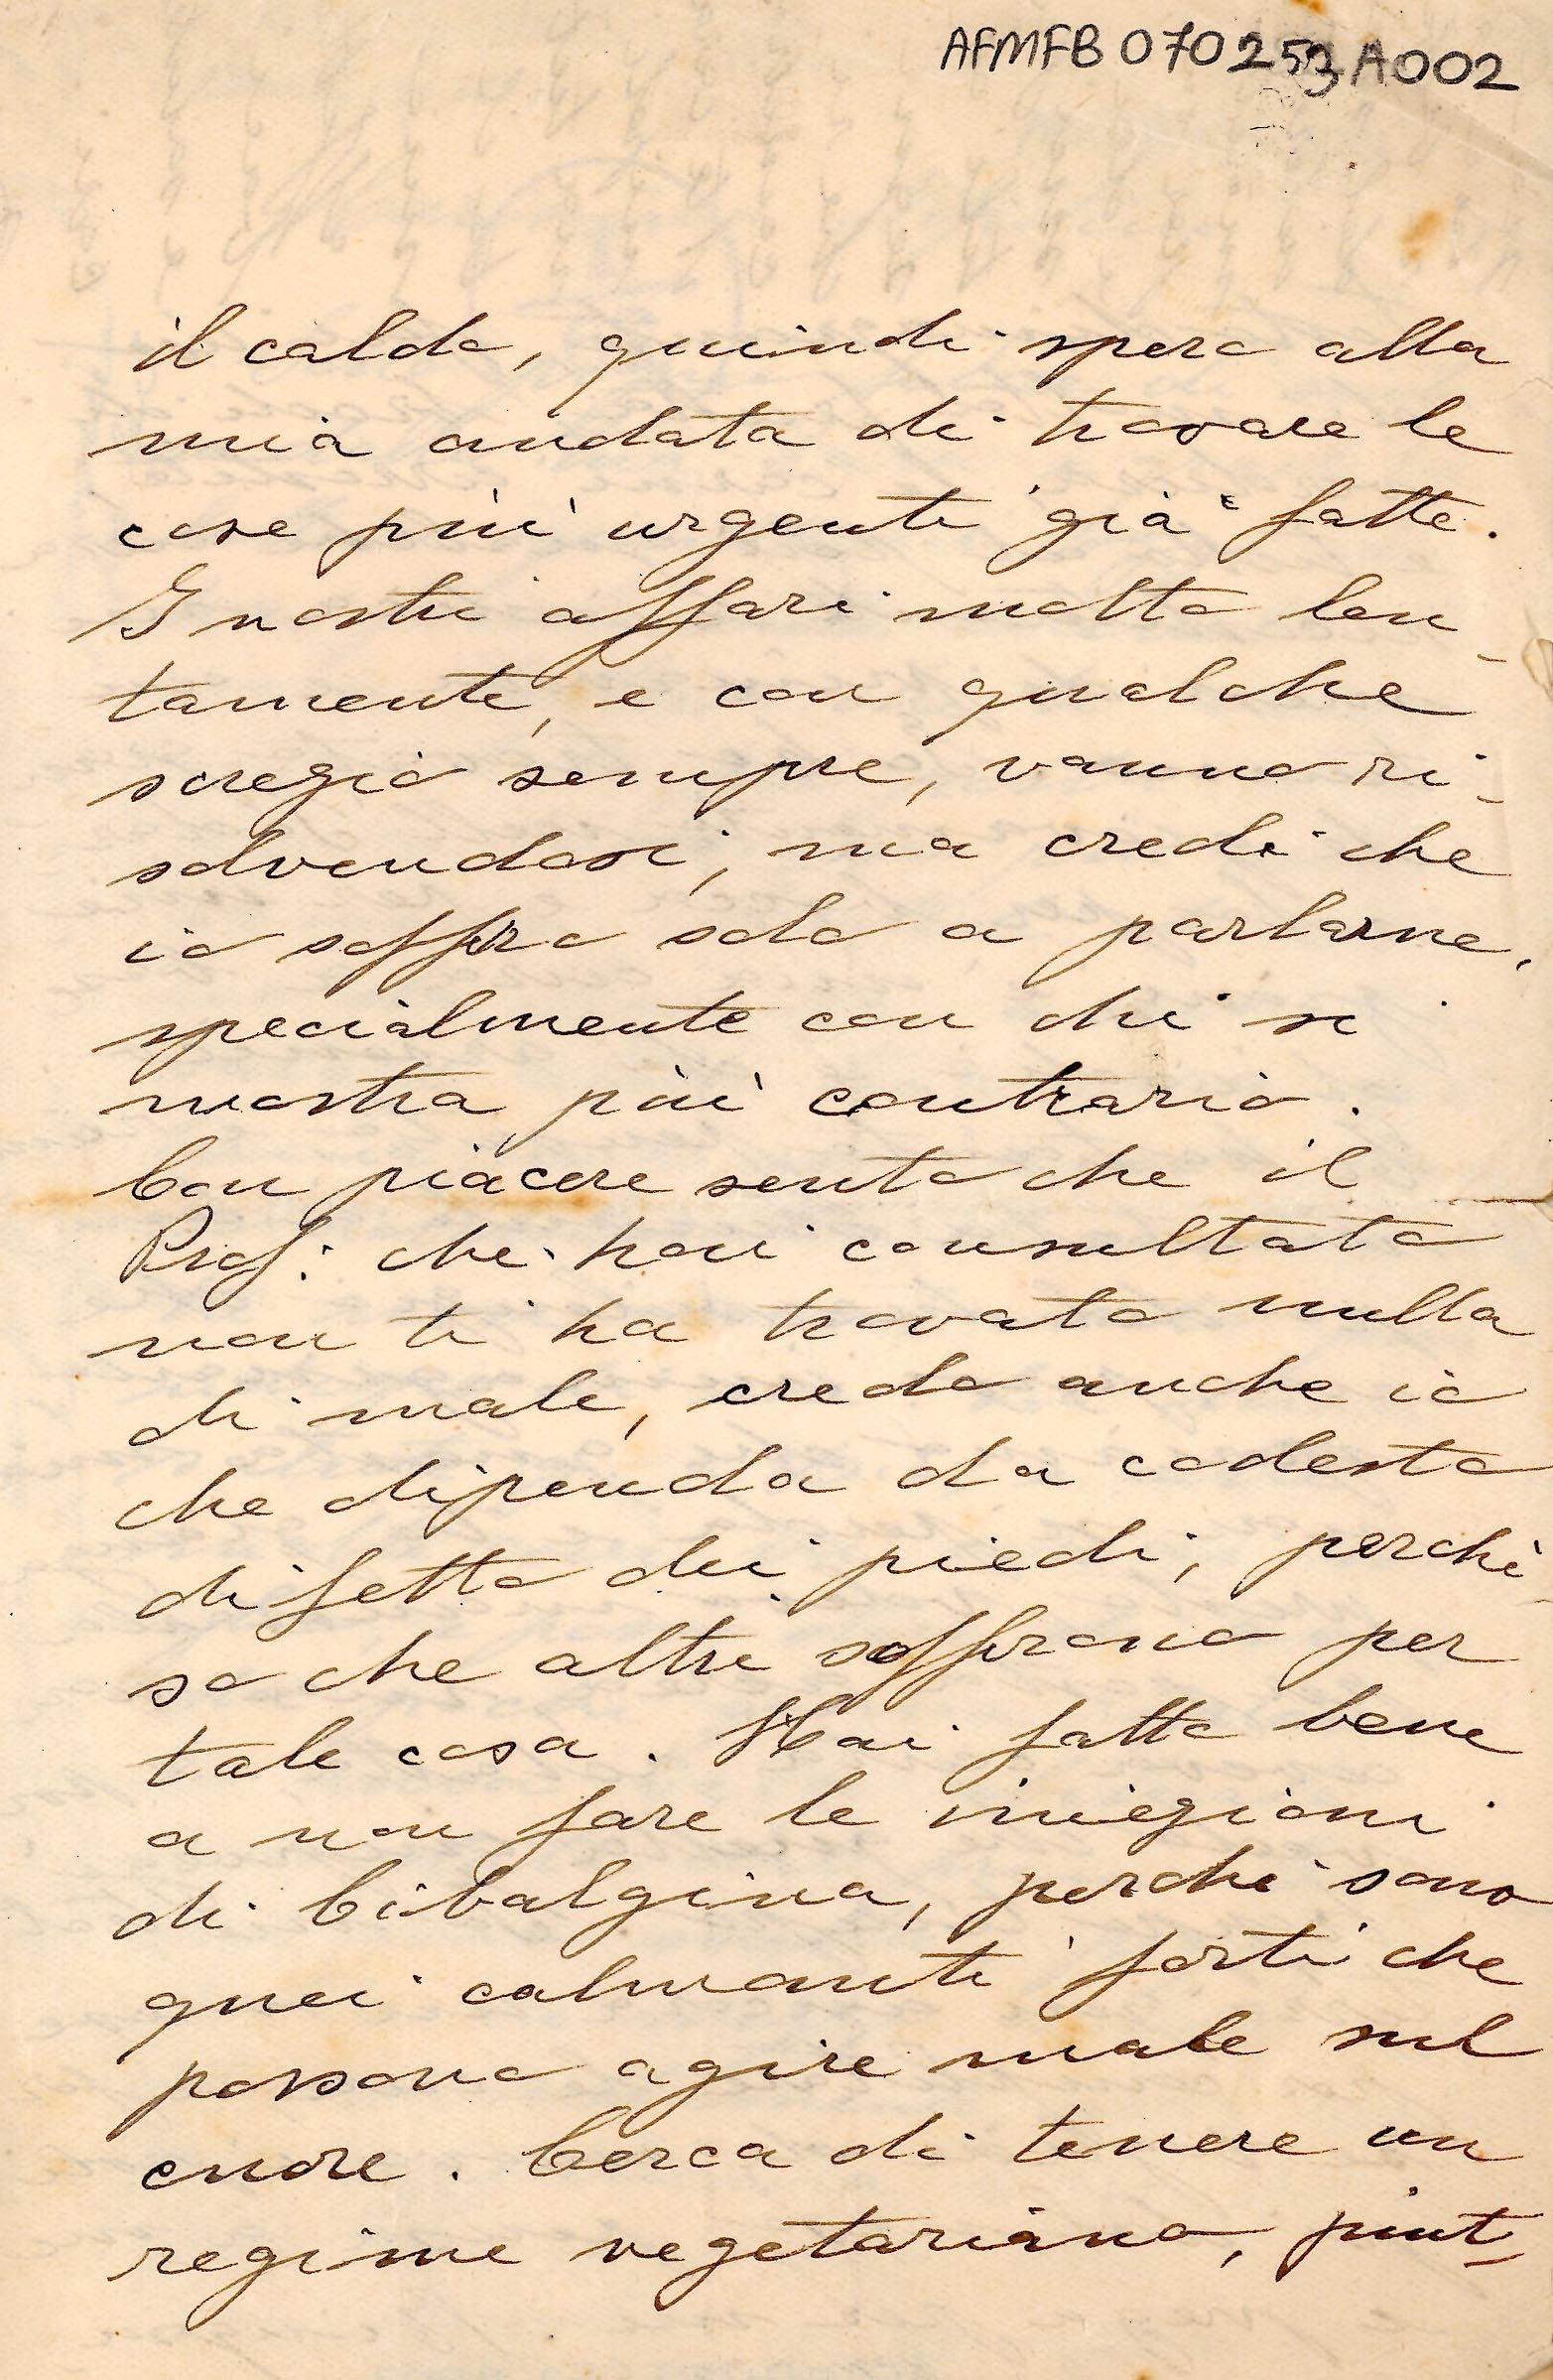 AFMFB 070253A002
il caldo, quindi spero alla
mia andata di trovare le
cose più urgenti già fatte.
I nostri affari molto len-
tamente, e con qualche
sfregio sempre, vanno ri-
solvendosi, ma credi che
io soffro solo a parlarne,
specialmente con chi si
mostra più contrario.
Con piacere sento che il
Prof: che hai consultato
non ti ha trovato nulla
di male, credo anche io
che dipenda da codesto
difetto dei piedi, perchè
so che altri soffrono per
tale cosa. Hai fatto bene
a non fare le iniezioni
di Cibalgina, perchè sono
quei calmanti forti che
possono agire male sul
cuore. Cerca di tenere un
regime vegetariano, piut-